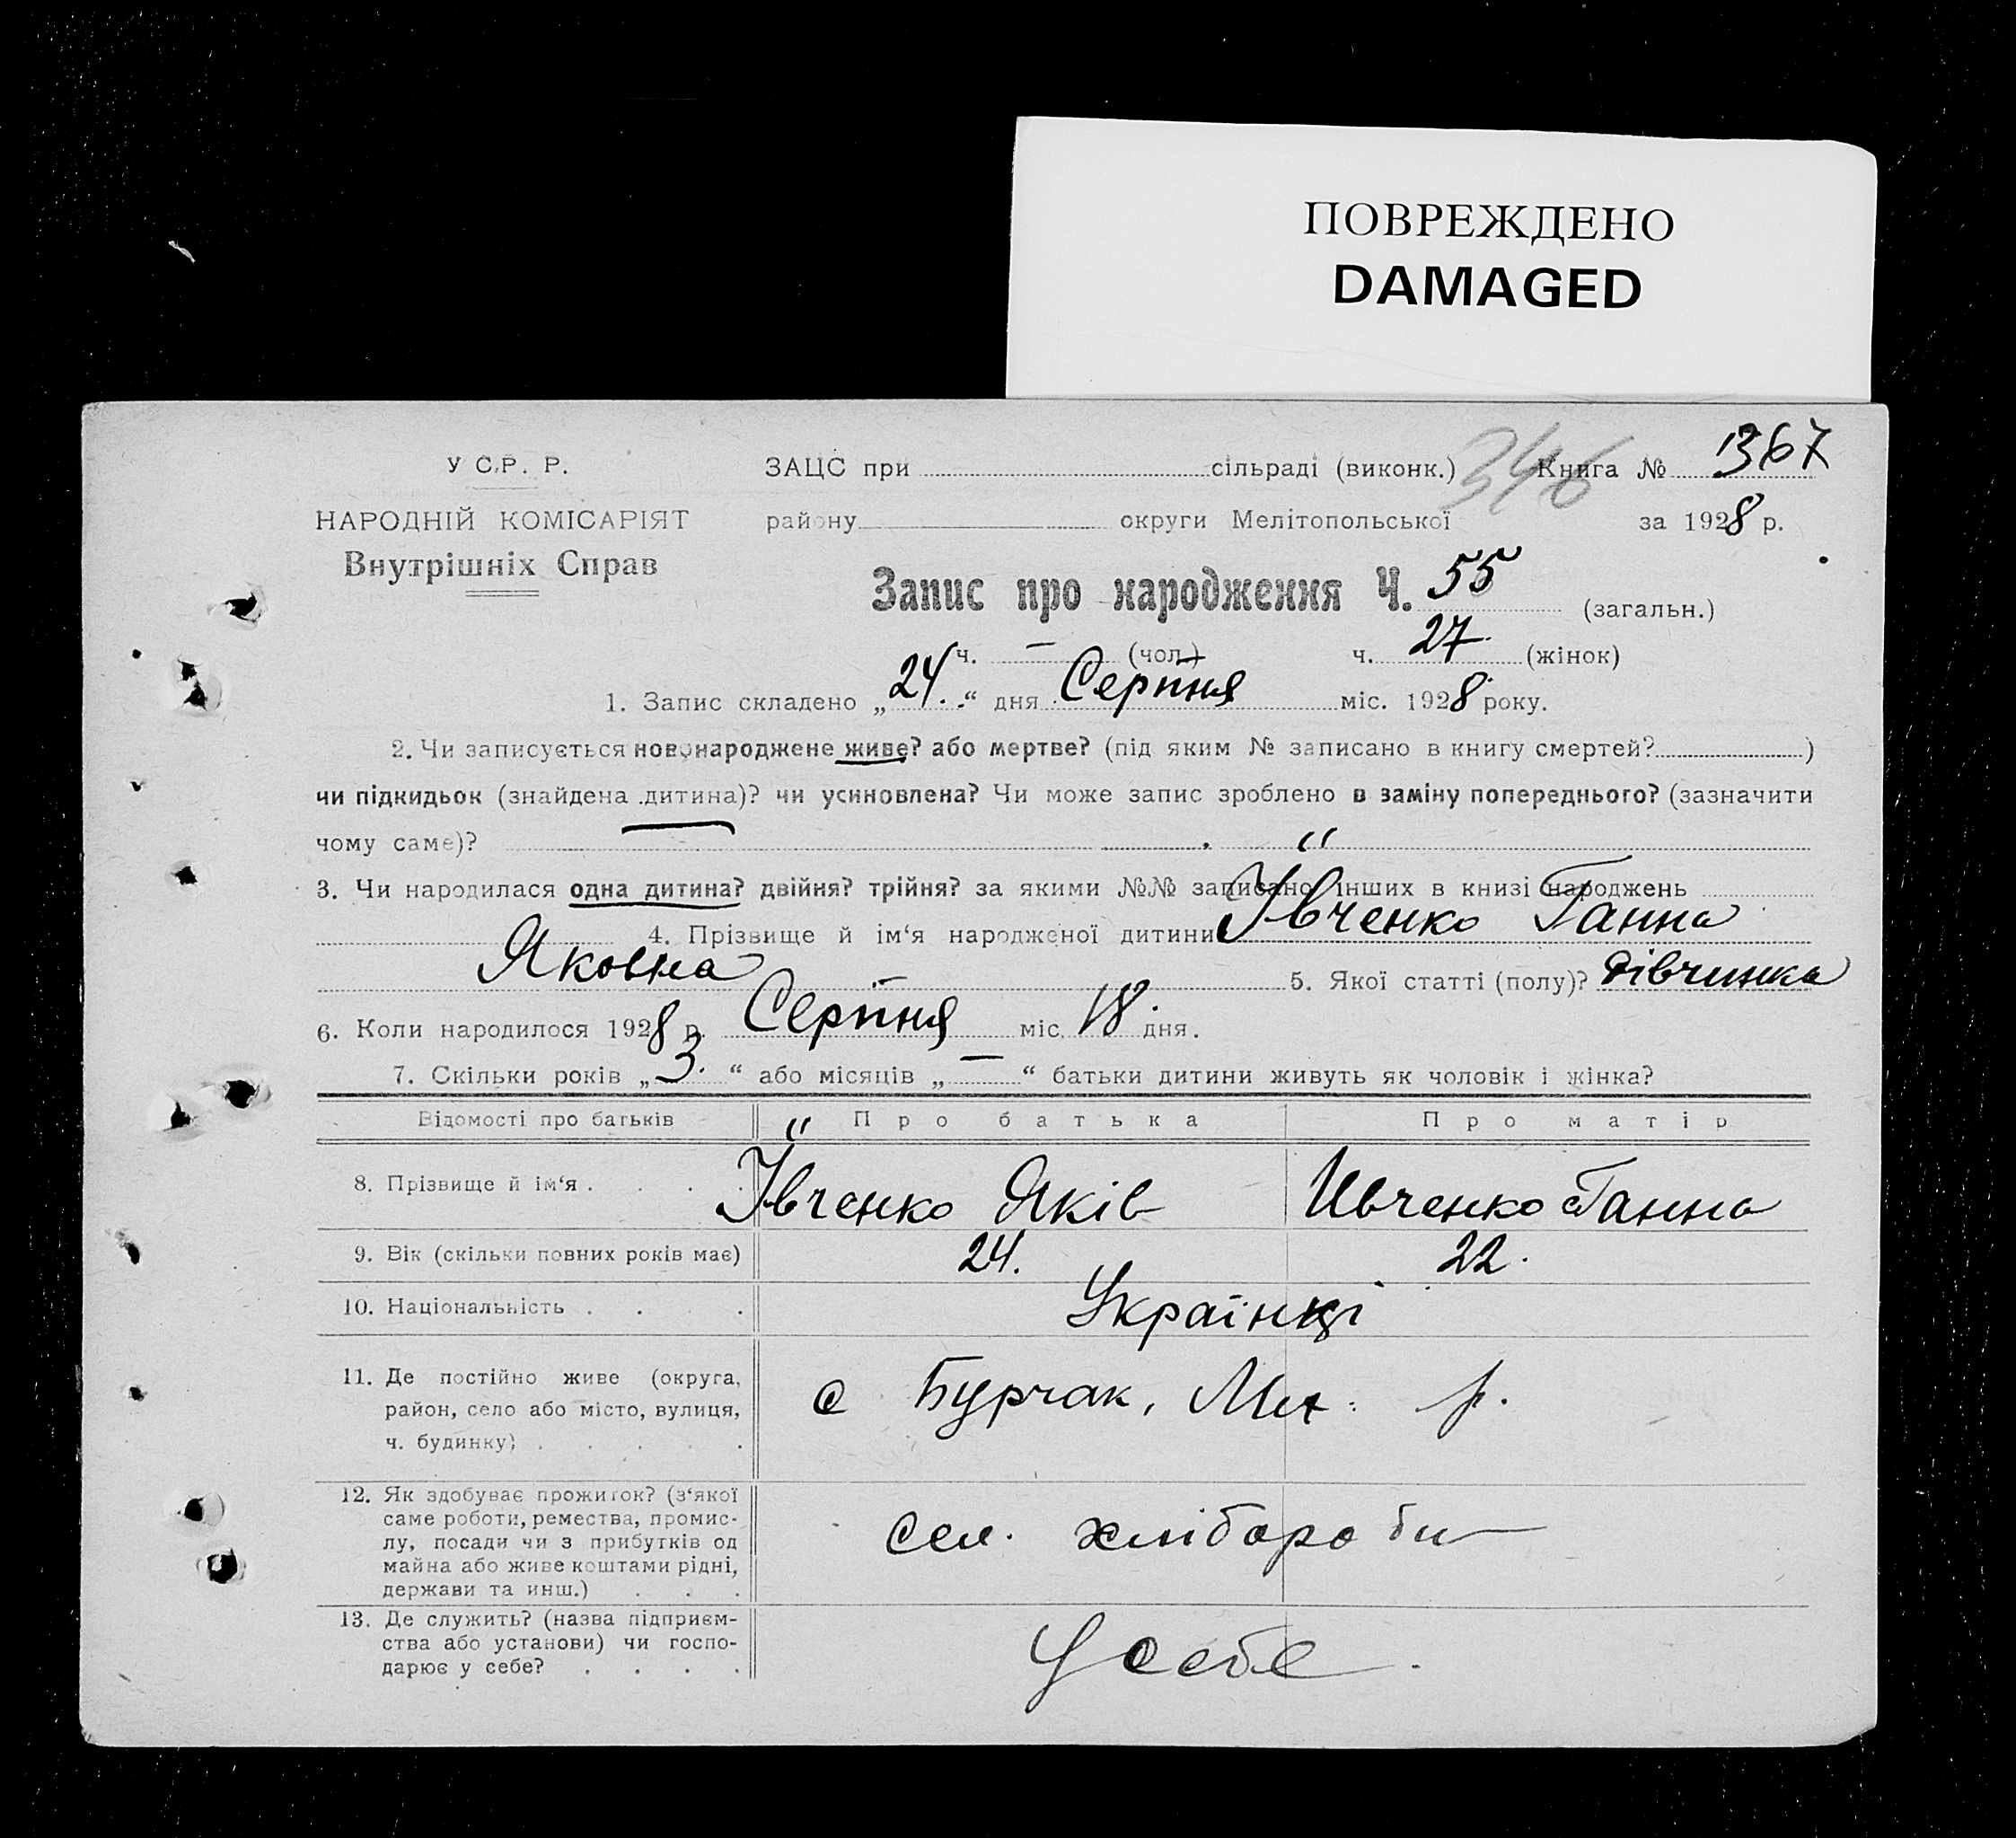 ПОВРЕЖДЕНО
DAMAGED
У С.Р. Р.
НАРОДНІЙ КОМІСАРІЯТ
Внутрішніх Справ
ЗАЦС при сільраді (виконк.) 346 Книга № 1367
району округи Мелітопольської за 1928 р.
Запис про народження Ч. 55 (загальн.)
ч. — (чол.) ч. 27 (жінок)
1. Запис складено „24.“ дня Серпня міс. 1928 року.
2. Чи записується новонароджене живе? або мертве? (під яким № записано в книгу смертей? )
чи підкидьок (знайдена дитина)? чи усиновлена? Чи може запис зроблено в заміну попереднього? (зазначити
чому саме)?
3. Чи народилася одна дитина? двійня? трійня? за якими №№ записано інших в книзі народжень
4. Прізвище й ім‘я народженої дитини Ївченко Ганна
Яковна 5. Якої статті (полу)? дівчинка
6. Коли народилося 1928 р. Серпня міс. 18 дня.
7. Скільки років „3.“ або місяців „—“ батьки дитини живуть як чоловік і жінка?
Відомості про батьків Про батька Про матір
8. Прізвище й ім‘я . . . . Ївченко Яків Ивченко Ганна
9. Вік (скільки повних років має) 24. 22.
10. Національність . . . Українці
11. Де постійно живе (округа,
район, село або місто, вулиця,
ч. будинку) . . . . .
с Бурчак, Мих. р.
12. Як здобуває прожиток? (з‘якої
саме роботи, ремества, промис-
лу, посади чи з прибутків од
майна або живе коштами рідні,
держави та инш.) . . .
сел. хлібороби
13. Де служить? (назва підприєм-
ства або установи) чи госпо-
дарює у себе? . . . .
У себе.